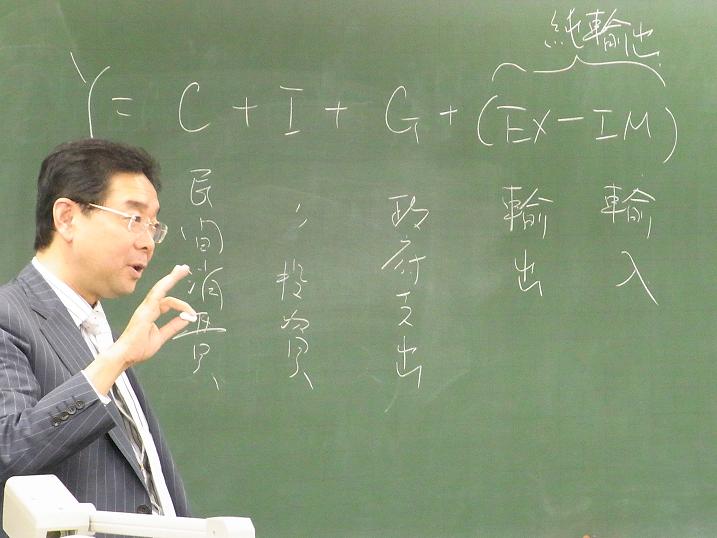 純輸出
Y = C + I + G + (EX − IM)
民間消費
〃投資
政府支出
輸出
輸入